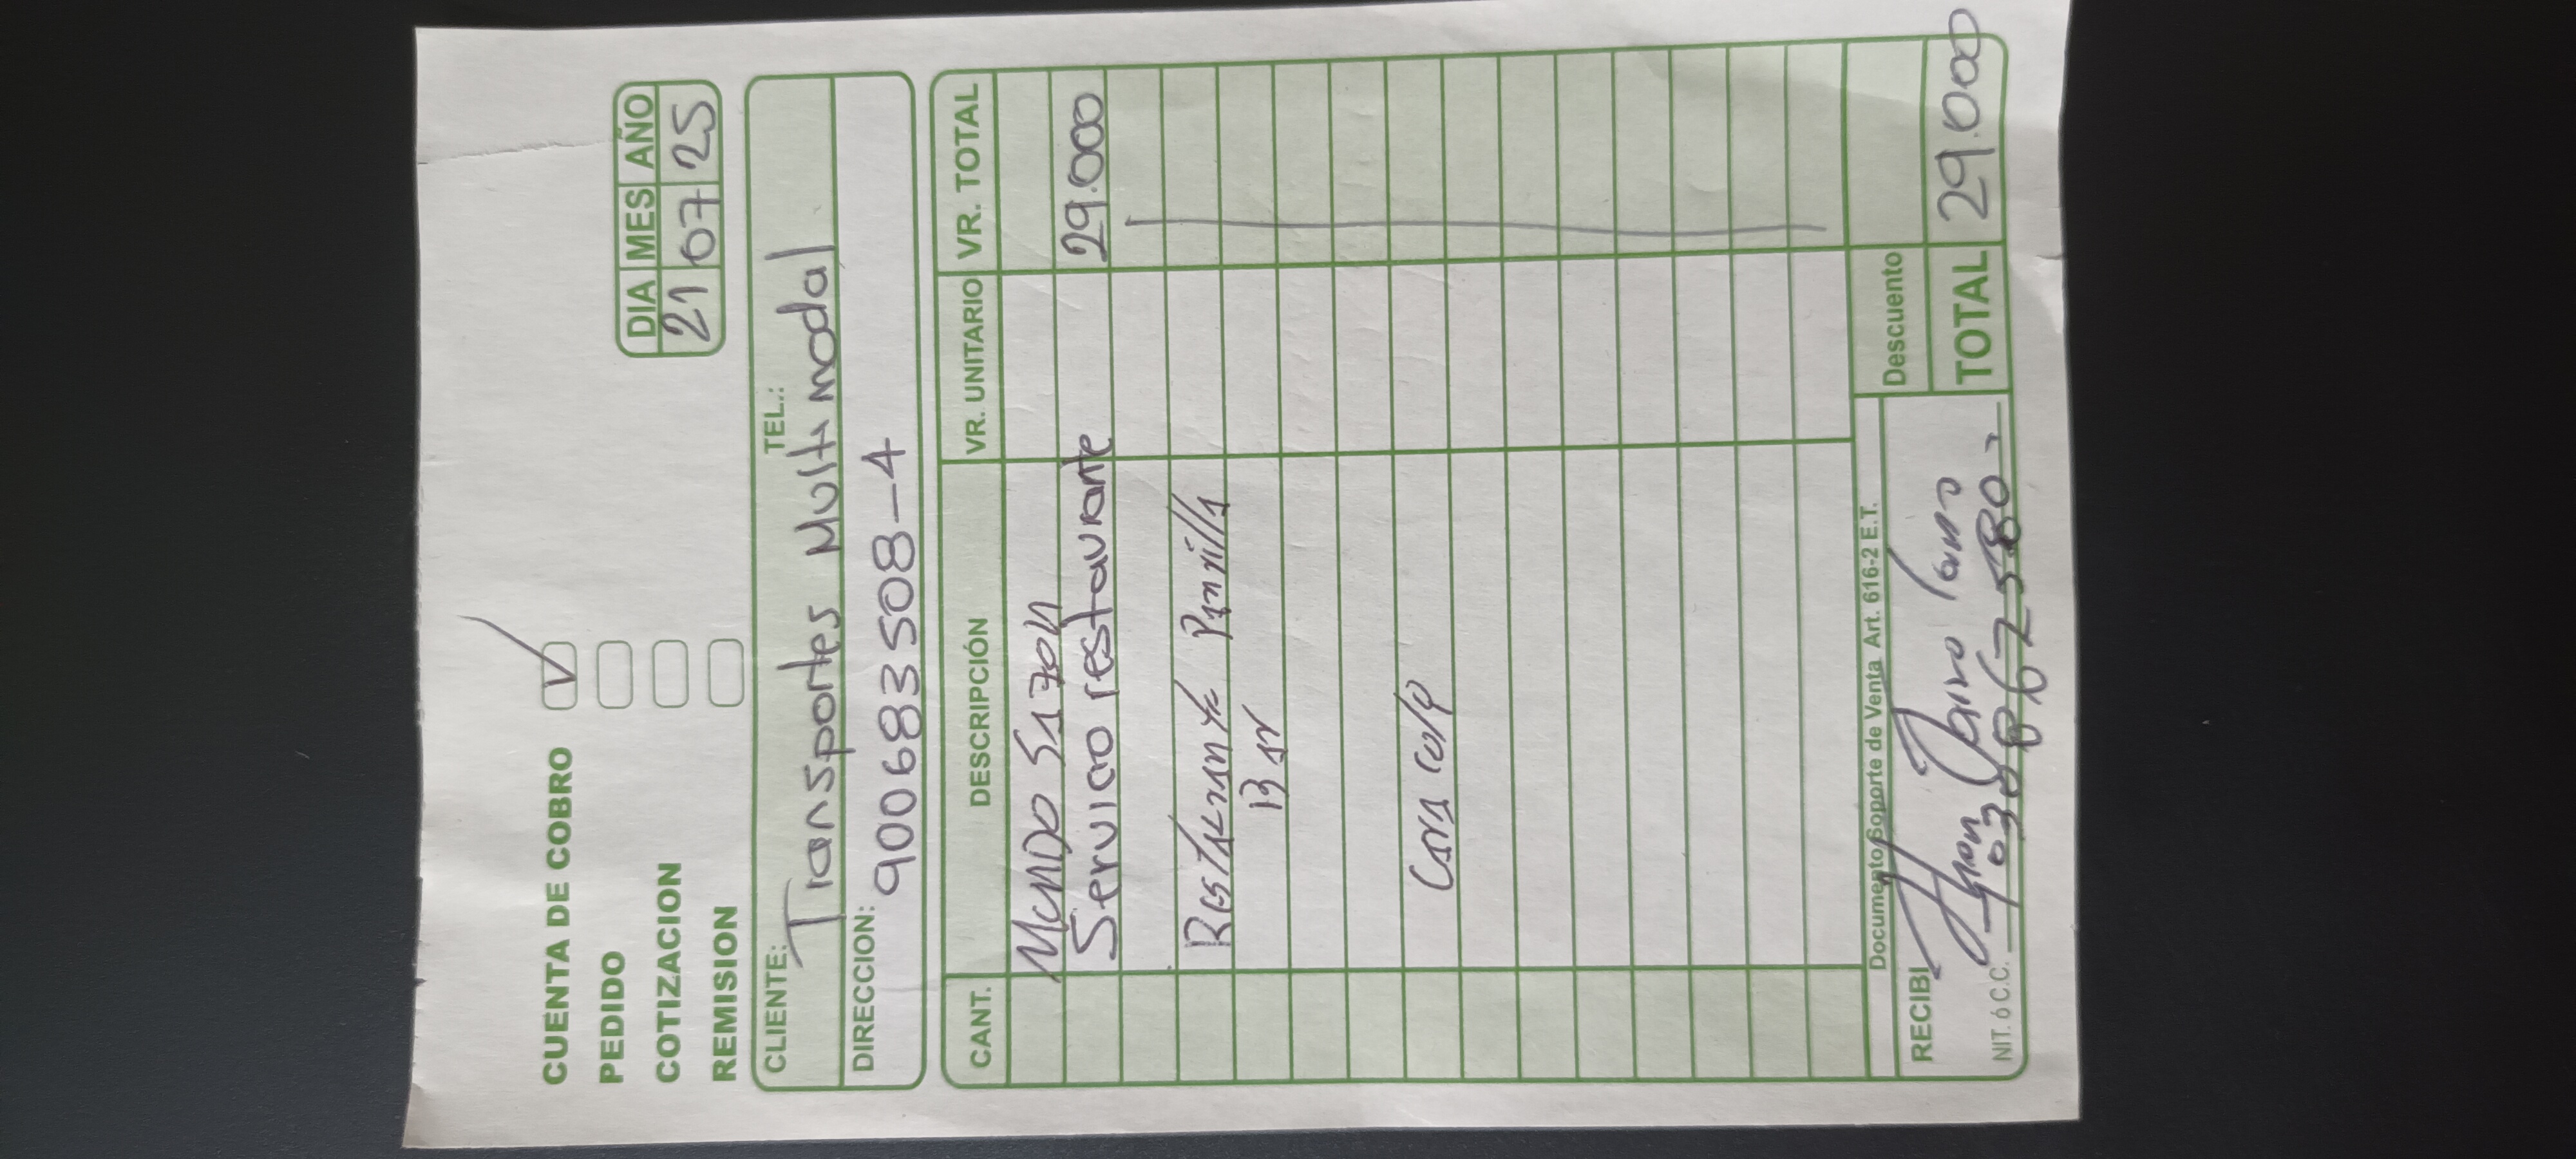 CUENTA DE COBRO
PEDIDO
COTIZACION
REMISION
DIA MES AÑO
21 07 25
CLIENTE: Transportes Multimodal TEL.:
DIRECCION: 900683508-4
CANT. DESCRIPCIÓN VR. UNITARIO VR. TOTAL
Mundo Sazon
Servicio restaurante 29.000
Restaurante Parrilla
Bar
Documento Soporte de Venta Art. 616-2 E.T.
RECIBI Jhon Jairo
Descuento
NIT. ó C.C.
TOTAL 29.000